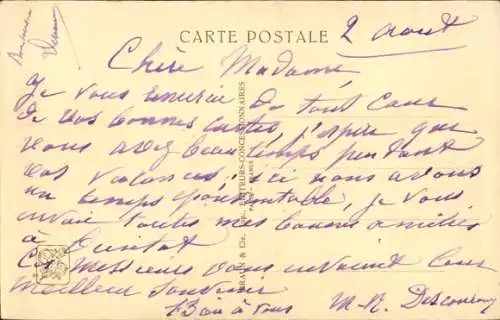 CARTE POSTALE
2 août
Chère Madame,
Je vous remercie de tout cœur
de vos bonnes cartes, j'espère que
vous avez beau temps pendant
vos vacances, ici nous avons
un temps épouvantable, je vous
envoie toutes mes bonnes amitiés
à bientôt
Ces Messieurs vous envoient leur
meilleur souvenir
Bien à vous
BRAUN & Cie, ÉDITEURS-CONCESSIONNAIRES